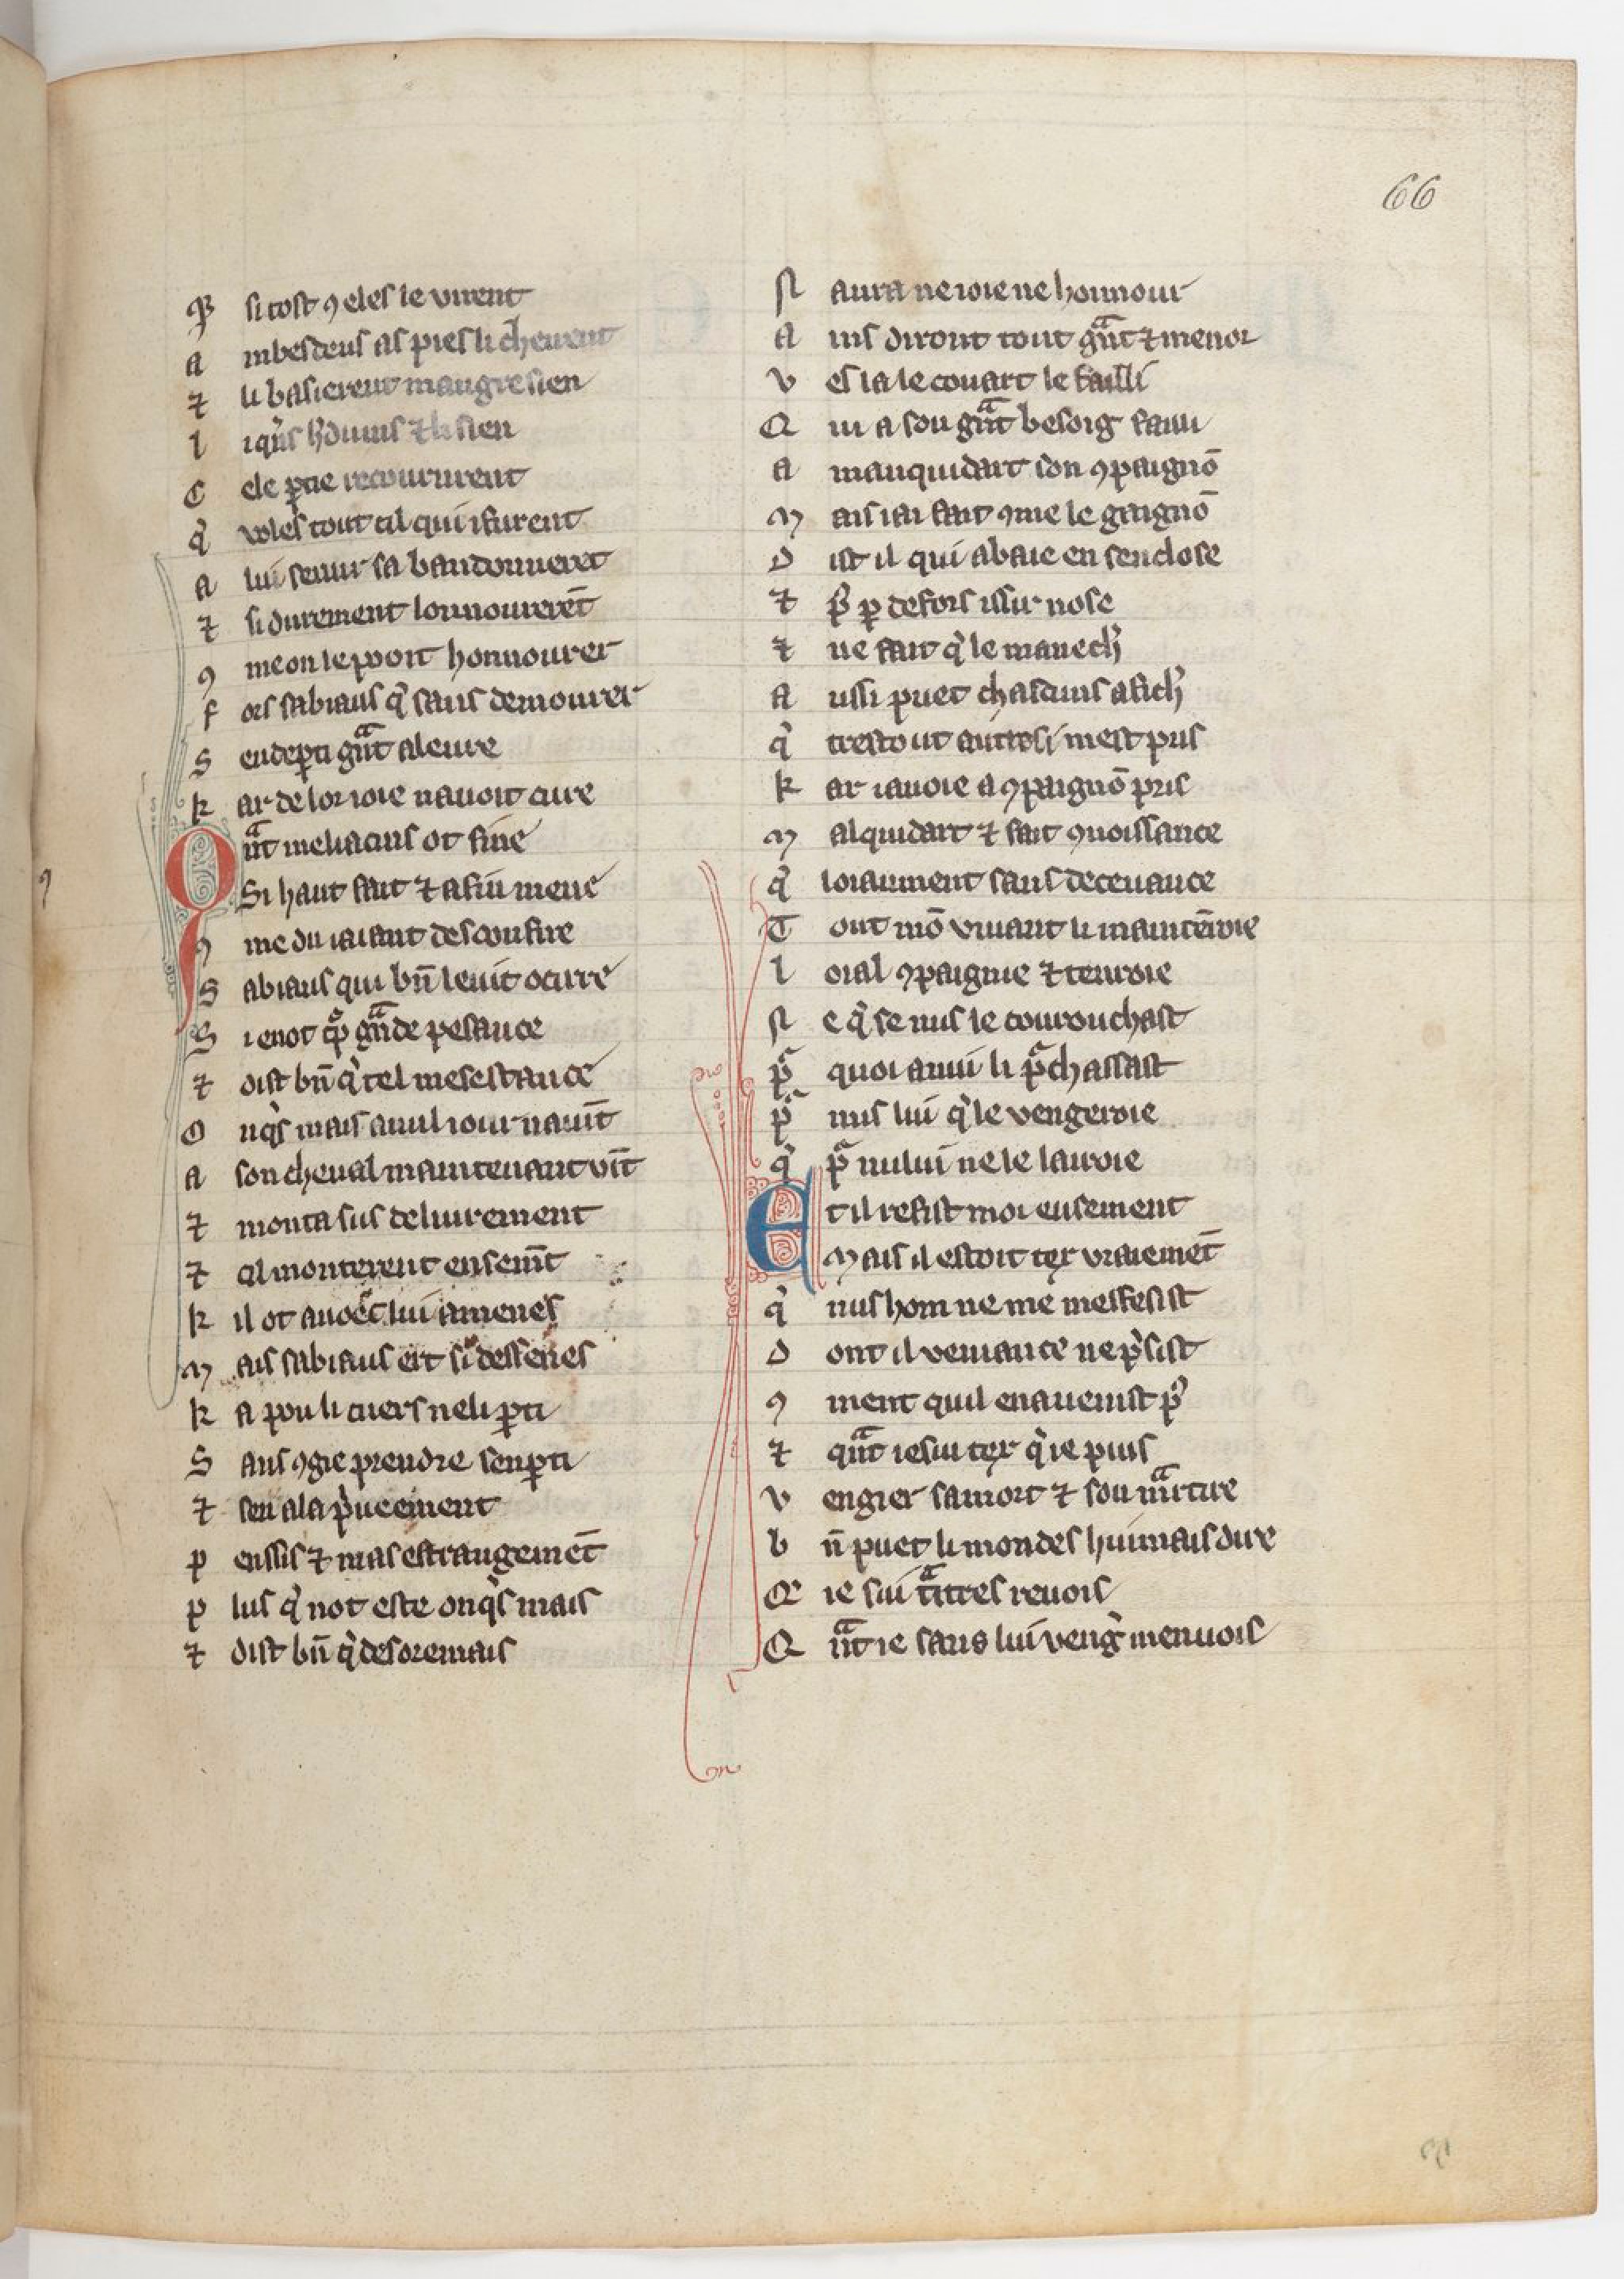 66
Q̃ si tost ꝯ eles le virent
A mbesdeus as pies li cheurent
⁊ li baisierent maugre sien
l i q̃ns h̃duins ⁊ li sien
C ele ꝑtie recoururent
q̃ voles tout cil qui i furent
a lui seruir sa bandonnerẽt
⁊ si durement lonnourerẽt
ꝯ me on le pooit honnourer
f ors sabiaus q̃ sans demourer
S en deꝑti gᷓnt aleure
k ar de lor ioie nauoit cure
Q ᷓnt meliacins ot fine
Si haut fait ⁊ a fin mene
ꝯ me du iaiant desconfire
S abiaus qui bñ leuit ocirre
S i en ot tᷓp gᷓnde pesance
⁊ dist bñ q̃ tel mesestance
O nq̃s mais a nul iour nauĩt
a son cheual maintenant vĩt
⁊ monta sus deliurement
⁊ cil monterent ensemt̃
k il ot auoec lui amenes
m ais sabiaus ert si dessenes
k a pou li cuers ne li ꝑti
S ans ꝯgie prendre senꝑti
⁊ sen ala p̃ueement
p ensſis ⁊ mas estrangemẽt
p lus q̃ not este onq̃s mais
⁊ dist bñ q̃ desoremais
N aura ne ioie ne honnour
A ins diront tout gᷓnt ⁊ menor
v es la le couart le failli
Q ui a son gᷓnt besoig failli
a mauquidart son ꝯpaignõ
m ais iai fait ꝯme le gaignõ
D ist il qui abaie en senclose
⁊ p̃ꝰ ꝑ defors issir nose
⁊ ne fait q̃ le manech̃
A ussi puet chascuns afich̃
q̃ trestout autresi mest pris
k ar iauoie a ꝯpaignõ pris
m alquidart ⁊ fait ꝯnoissance
q̃ loiaument sans deceuance
T out mõ viuant li maintẽroie
l oial ꝯpaignie ⁊ tenroie
N e q̃ se nus le courouchast
pᷓ quoi anui li pᷓchassast
pᷓ nus lui q̃ le vengeroie
q̃ pᷓ nului ne le lairoie
E t il refist moi ensement
Mais il estoit teꝉ vraiemẽt
q̃ nus hom ne me mesfesist
D ont il veniance ne p̃sist
ꝯ ment quil en auenist pꝰ
⁊ qᷓnt ie sui teꝉ q̃ ie puis
v engier sa mort ⁊ son mᷓrtire
b ñ puet li mondes huimais dire
Q̃ ie sui tᷓitres reuois
Q ᷓnt ie sans lui veng̃ menuois